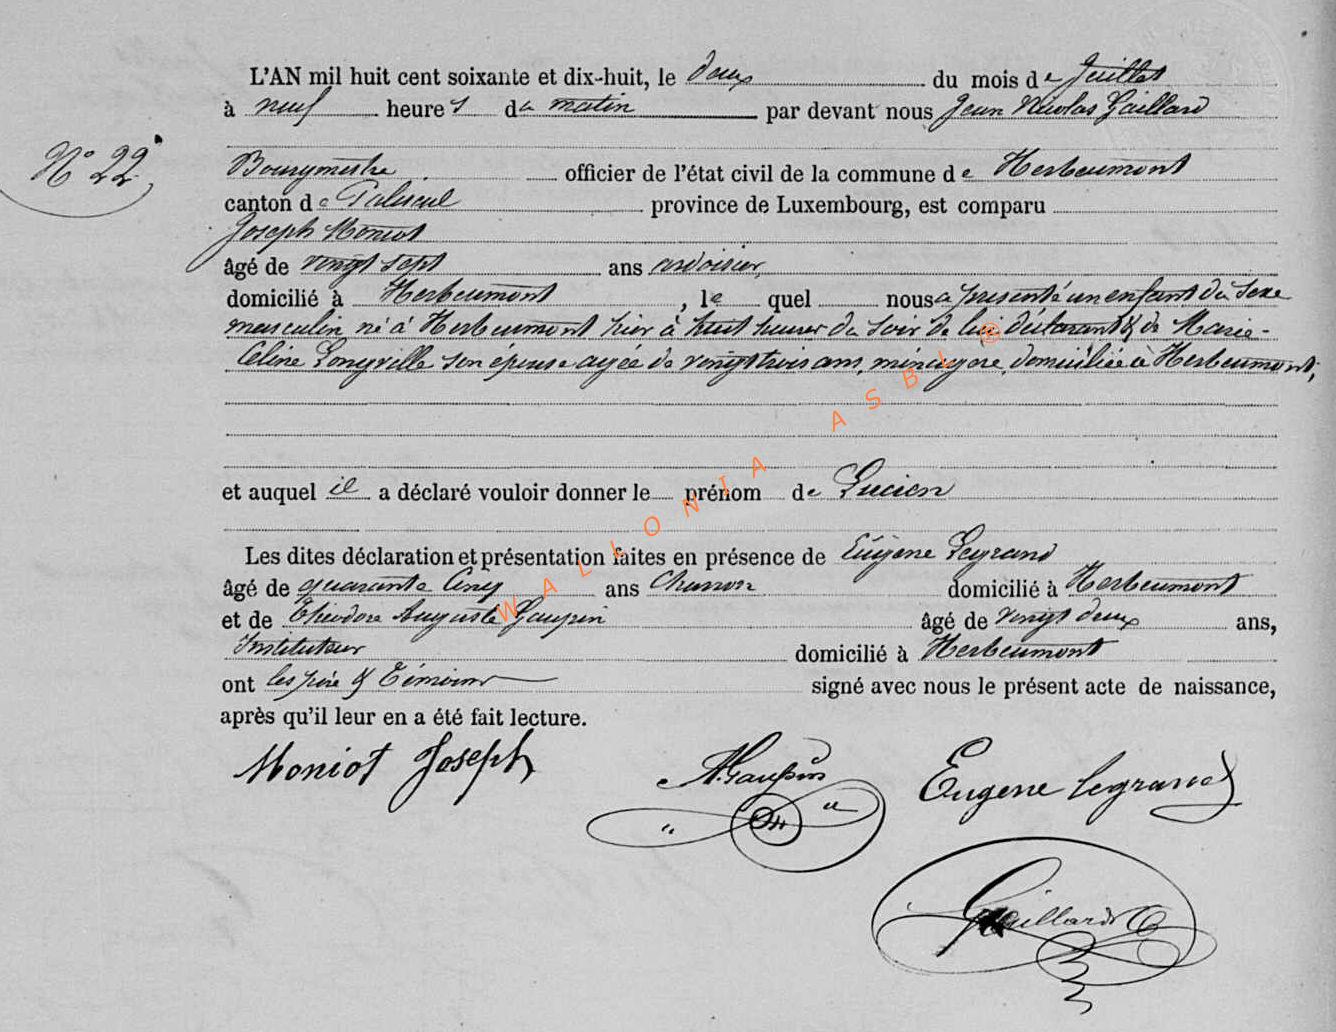 L'AN mil huit cent soixante et dix-huit, le deux du mois de Juillet
à neuf heures du matin par devant nous Jean Nicolas Gaillard
N° 22
Bourgmestre officier de l'état civil de la commune de Herbeumont
canton de Paliseul province de Luxembourg, est comparu
Joseph Moniot
âgé de vingt sept ans ardoisier,
domicilié à Herbeumont, lequel nous a présenté un enfant du sexe
masculin né à Herbeumont hier à huit heures du soir de lui déclarant & de Marie-
Celine Longville son épouse agée de vingt trois ans, ménagère, domiciliée à Herbeumont;
et auquel il a déclaré vouloir donner le prénom de Lucien
Les dites déclaration et présentation faites en présence de Eugène Legrand
âgé de quarante cinq ans Charron domicilié à Herbeumont
et de Théodore Auguste Gaupin âgé de vingt deux ans,
Instituteur domicilié à Herbeumont
ont les père & Témoins signé avec nous le présent acte de naissance,
après qu'il leur en a été fait lecture.
Moniot Joseph A. Gaupin Eugene Legrand
Gaillard
WALLONIA ASBL ®